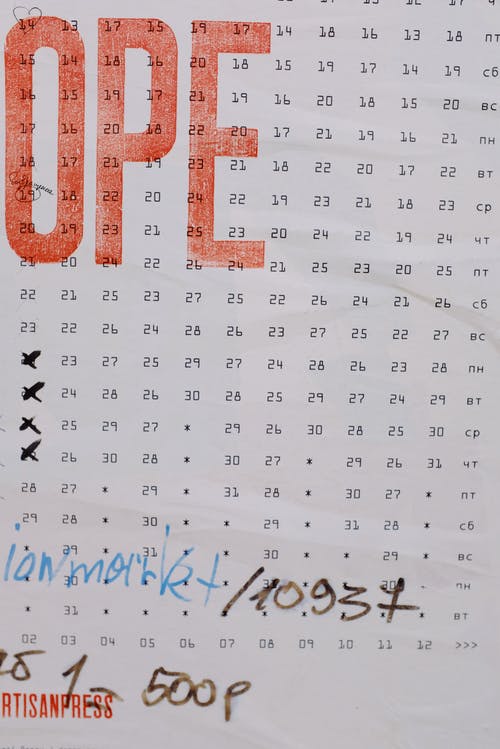 OPE
14 13 17 15 19 17 14 18 16 13 18 пт
15 14 18 16 20 18 15 19 17 14 19 сб
16 15 19 17 21 19 16 20 18 15 20 вс
17 16 20 18 22 20 17 21 19 16 21 пн
18 17 21 19 23 21 18 22 20 17 22 вт
19 18 22 20 24 22 19 23 21 18 23 ср
20 19 23 21 25 23 20 24 22 19 24 чт
21 20 24 22 26 24 21 25 23 20 25 пт
22 21 25 23 27 25 22 26 24 21 26 сб
23 22 26 24 28 26 23 27 25 22 27 вс
23 27 25 29 27 24 28 26 23 28 пн
24 28 26 30 28 25 29 27 24 29 вт
25 29 27 * 29 26 30 28 25 30 ср
26 30 28 * 30 27 * 29 26 31 чт
28 27 * 29 * 31 28 * 30 27 * пт
29 28 * 30 * * 29 * 31 28 * сб
* 29 * 31 * * 30 * * 29 * вс
30 пн
/10937
* 31 * * * * * * * * * вт
02 03 04 05 06 07 08 09 10 11 12 >>>
500р
RTISANPRESS